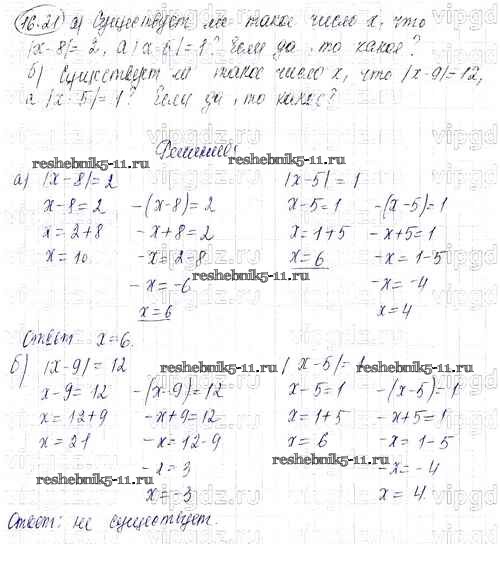 16.21 а) Существует ли такое число x, что
|x-8|= 2, а |x-5|=1? Если да, то какое?
б) Существует ли такое число x, что |x-9|=12,
а |x-5|=1? Если да, то какое?
Решение:
reshebnik5-11.ru
reshebnik5-11.ru
а) |x-8|=2 |x-5|=1
x-8=2 -(x-8)=2 x-5=1 -(x-5)=1
x=2+8 -x+8=2 x=1+5 -x+5=1
x=10 -x=2-8 x=6 -x=1-5
reshebnik5-11.ru
-x=-6 -x=-4
x=6 x=4
Ответ x=6.
б) |x-9|=12 reshebnik5-11.ru |x-5|=1 reshebnik5-11.ru
x-9=12 -(x-9)=12 x-5=1 -(x-5)=1
x=12+9 -x+9=12 x=1+5 -x+5=1
x=21 -x=12-9 x=6 -x=1-5
reshebnik5-11.ru
-x=3 -x=-4
reshebnik5-11.ru
x=-3 x=4.
Ответ: не существует.